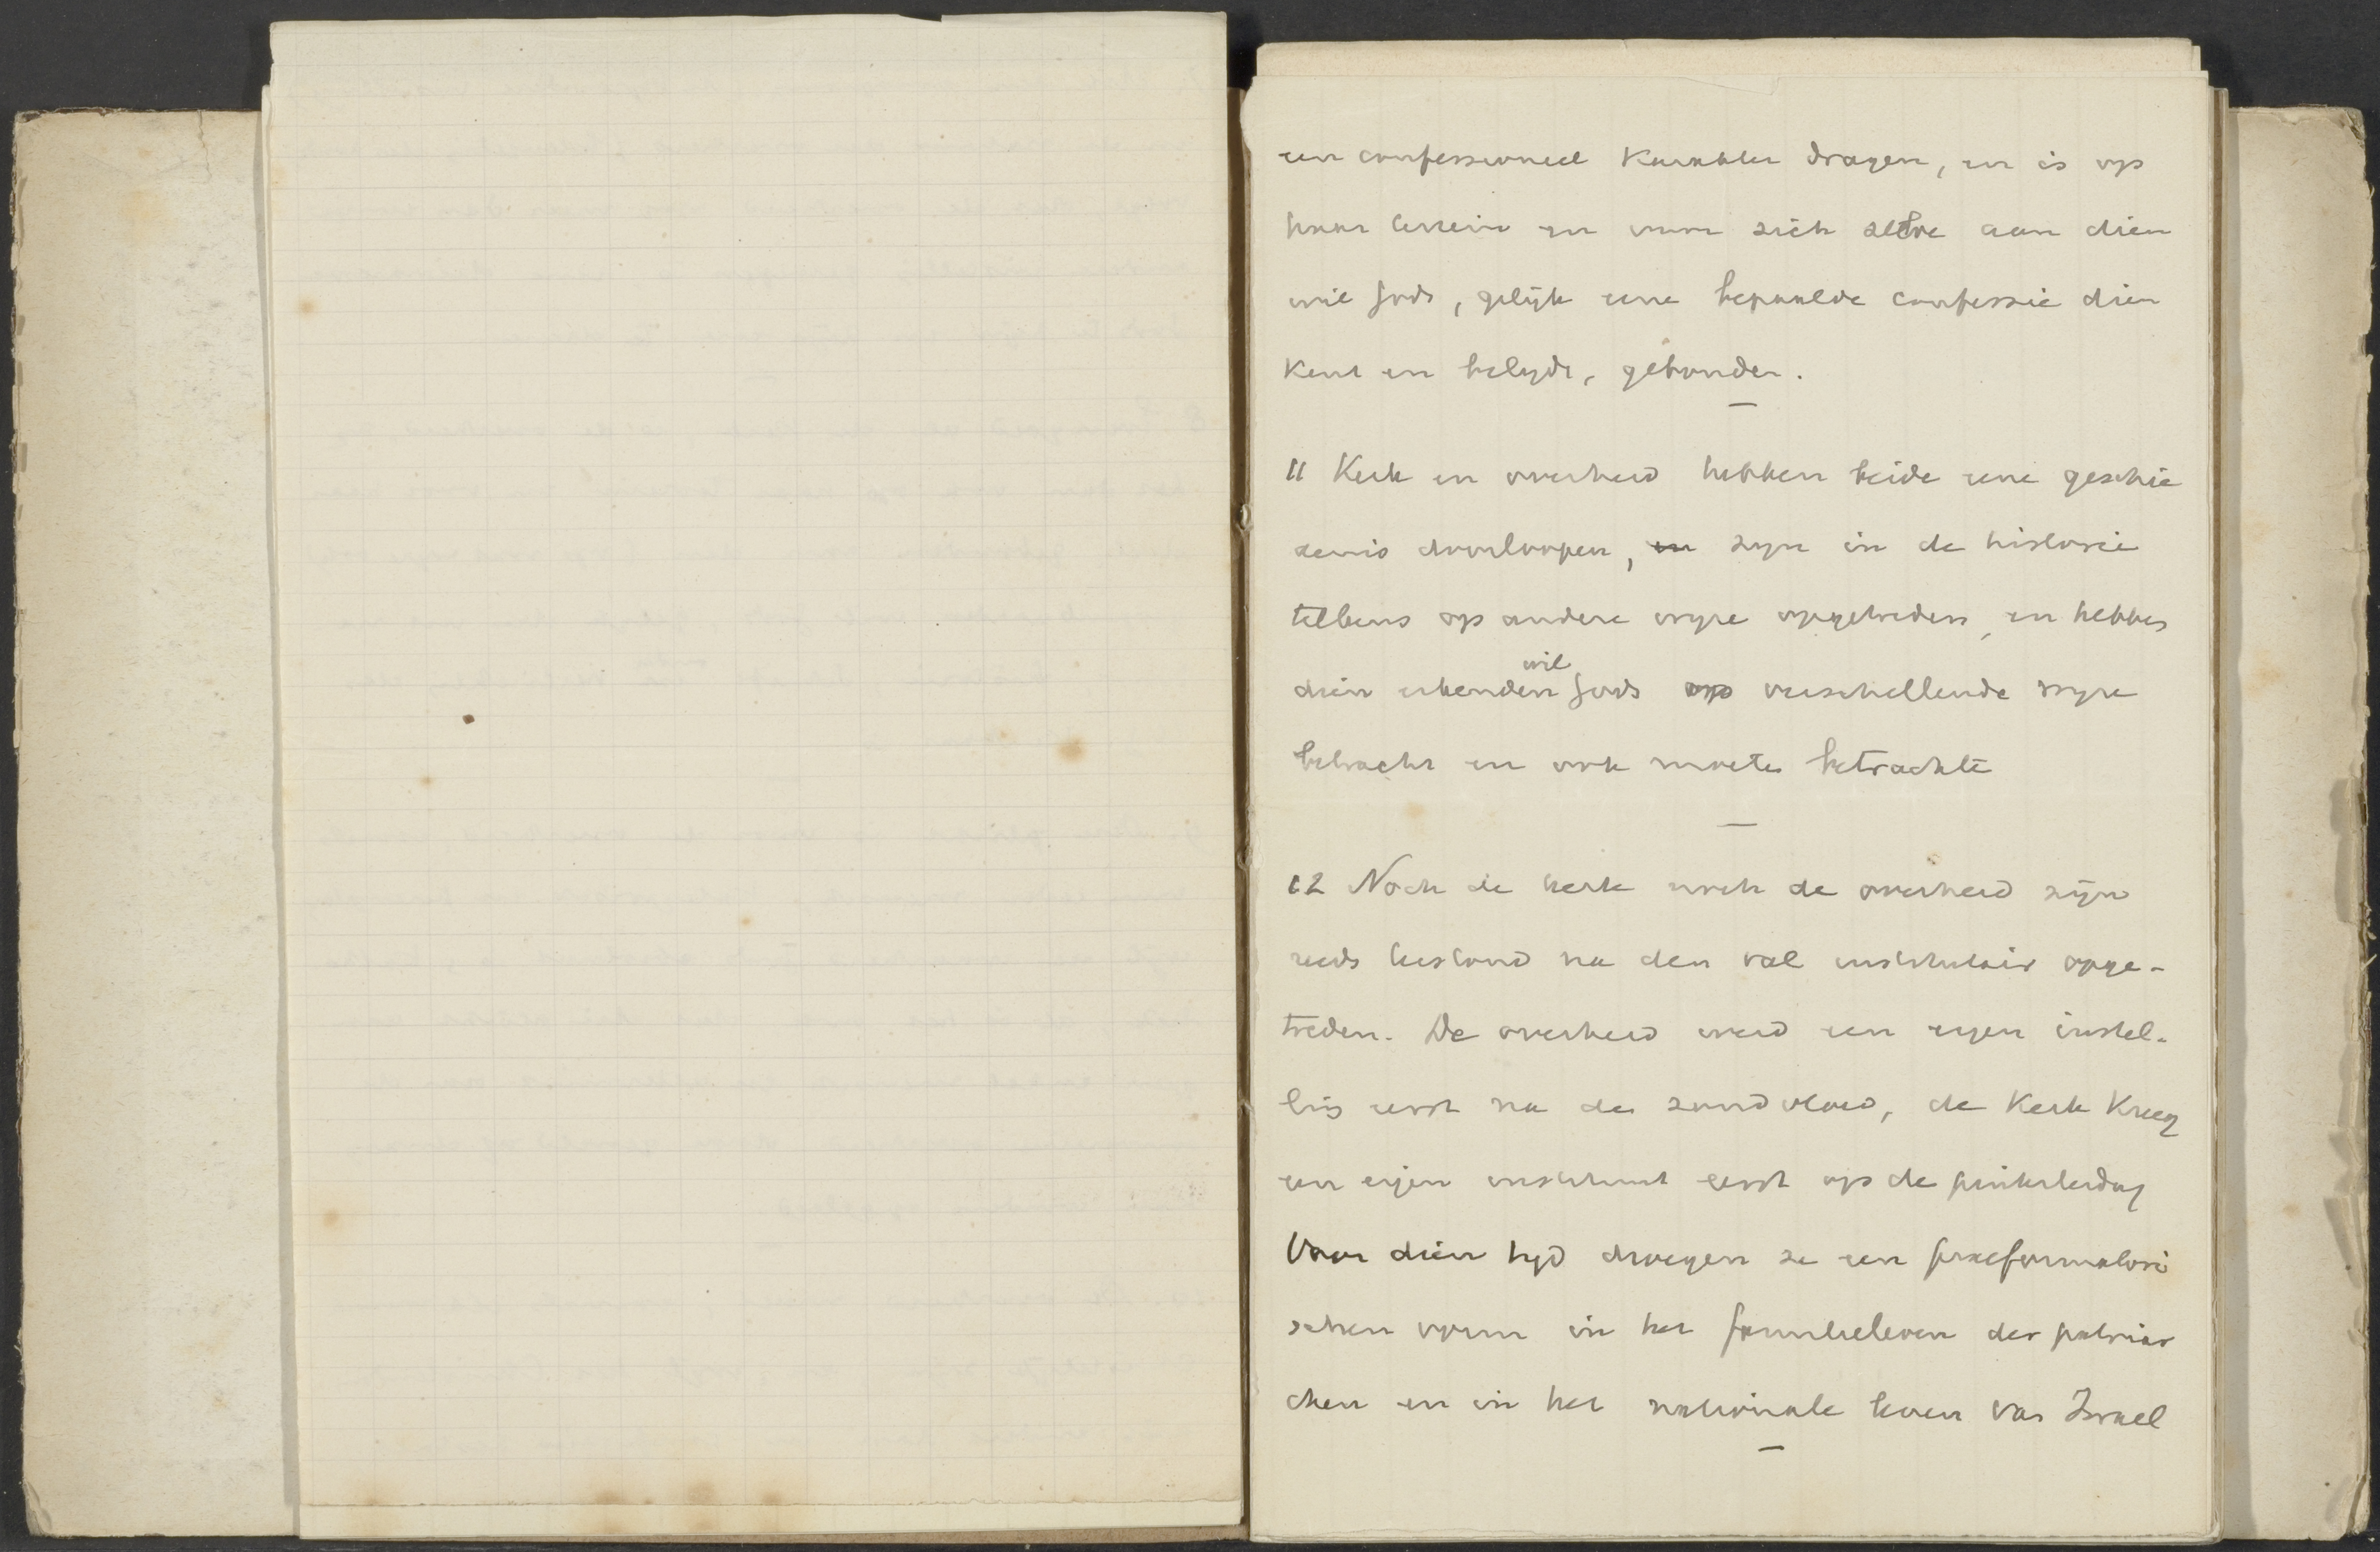 een confessioneel karakter dragen, en is op
haar terrein en voor zich zelve aan dien
wil Gods, gelijk eene bepaalde confessie dien
kent en belydt, gebonden.
11 Kerk en overheid hebben beide eene geschie
denis doorloopen, en zyn in de historie
telkens op andere wyze opgetreden, en hebben
dien erkenden wil Gods op verschillende wyze
betracht en ook moeten betrachte
12 Noch de kerk noch de overheid zijn
reeds terstond na den val institutair opge-
treden. De overheid werd een eigen instel-
ling eerst na de zondvloed, de Kerk kreeg
een eigen instituut eerst op de pinksterdag
Voor dien tyd droegen ze een praeformatori
schen vorm in het familieleven der patriar
chen en in het nationale leven van Israel